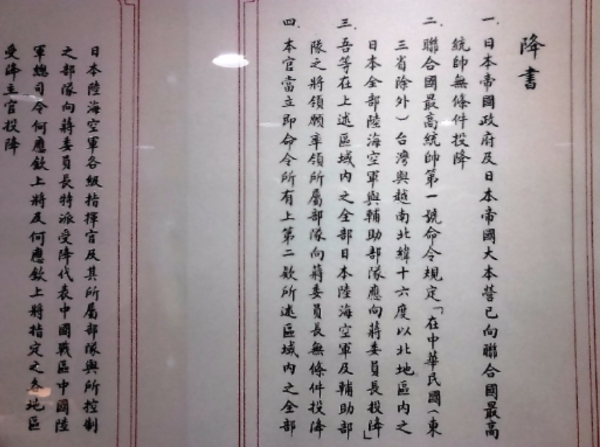 降書
一、日本帝國政府及日本帝國大本營已向聯合國最高
統帥無條件投降
二、聯合國最高統帥第一號命令規定「在中華民國(東
三省除外)台灣與越南北緯十六度以北地區內之
日本全部陸海空軍與輔助部隊應向蔣委員長投降」
三、吾等在上述區域內之全部日本陸海空軍及輔助部
隊之將領願率領所屬部隊向蔣委員長無條件投降
四、本官當立即命令所有上第二款所述區域內之全部
日本陸海空軍各級指揮官及其所屬部隊與所控制
之部隊向蔣委員長特派受降代表中國戰區中國陸
軍總司令何應欽上將及何應欽上將指定之各地區
受降主官投降